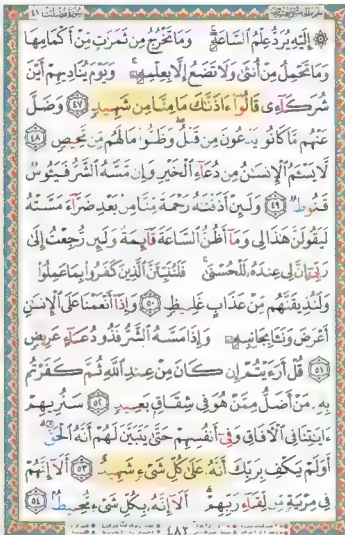 سورة فصلت ٤١
۞ إِلَيْهِ يُرَدُّ عِلْمُ السَّاعَةِ ۚ وَمَا تَخْرُجُ مِن ثَمَرَٰتٍ مِّنْ أَكْمَامِهَا
وَمَا تَحْمِلُ مِنْ أُنثَىٰ وَلَا تَضَعُ إِلَّا بِعِلْمِهِ ۚ وَيَوْمَ يُنَادِيهِمْ أَيْنَ
شُرَكَآءِى قَالُوٓا۟ ءَاذَنَّـٰكَ مَا مِنَّا مِن شَهِيدٍ ٤٧ وَضَلَّ
عَنْهُم مَّا كَانُوا۟ يَدْعُونَ مِن قَبْلُ ۖ وَظَنُّوا۟ مَا لَهُم مِّن مَّحِيصٍ ٤٨
لَّا يَسْـَٔمُ الْإِنسَـٰنُ مِن دُعَآءِ الْخَيْرِ وَإِن مَّسَّهُ الشَّرُّ فَيَـُٔوسٌ
قَنُوطٌ ٤٩ وَلَئِنْ أَذَقْنَـٰهُ رَحْمَةً مِّنَّا مِنۢ بَعْدِ ضَرَّآءَ مَسَّتْهُ
لَيَقُولَنَّ هَـٰذَا لِى وَمَآ أَظُنُّ السَّاعَةَ قَآئِمَةً وَلَئِن رُّجِعْتُ إِلَىٰ
رَبِّىٓ إِنَّ لِى عِندَهُۥ لَلْحُسْنَىٰ ۚ فَلَنُنَبِّئَنَّ الَّذِينَ كَفَرُوا۟ بِمَا عَمِلُوا۟
وَلَنُذِيقَنَّهُم مِّنْ عَذَابٍ غَلِيظٍ ٥٠ وَإِذَآ أَنْعَمْنَا عَلَى الْإِنسَـٰنِ
أَعْرَضَ وَنَـَٔا بِجَانِبِهِۦ وَإِذَا مَسَّهُ الشَّرُّ فَذُو دُعَآءٍ عَرِيضٍ
٥١ قُلْ أَرَءَيْتُمْ إِن كَانَ مِنْ عِندِ اللَّهِ ثُمَّ كَفَرْتُم
بِهِۦ مَنْ أَضَلُّ مِمَّنْ هُوَ فِى شِقَاقٍۭ بَعِيدٍ ٥٢ سَنُرِيهِمْ
ءَايَـٰتِنَا فِى الْـَٔافَاقِ وَفِىٓ أَنفُسِهِمْ حَتَّىٰ يَتَبَيَّنَ لَهُمْ أَنَّهُ الْحَقُّ ۗ
أَوَلَمْ يَكْفِ بِرَبِّكَ أَنَّهُۥ عَلَىٰ كُلِّ شَىْءٍ شَهِيدٌ ٥٣ أَلَآ إِنَّهُمْ
فِى مِرْيَةٍ مِّن لِّقَآءِ رَبِّهِمْ ۗ أَلَآ إِنَّهُۥ بِكُلِّ شَىْءٍ مُّحِيطٌۢ ٥٤
٤٨٢